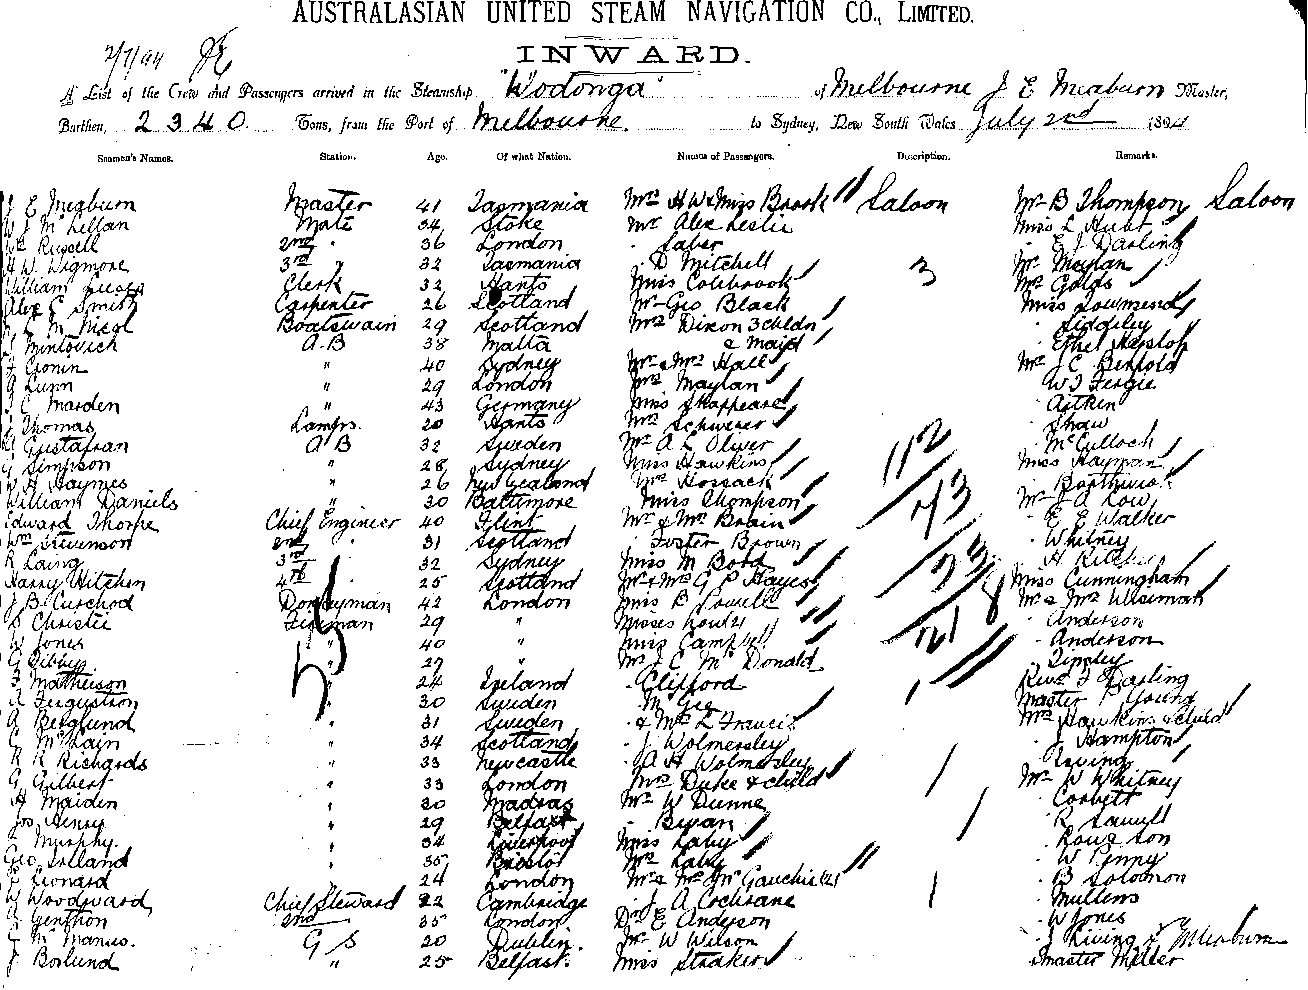 AUSTRALASIAN UNITED STEAM NAVIGATION CO., LIMITED.
2/7/94
INWARD.
A List of the Crew and Passengers arrived in the Steamship "Wodonga" of Melbourne J E Meaburn Master,
Burthen, 2340 Tons, from the Port of Melbourne. to Sydney, New South Wales July 2nd 1894
Seamen's Names. Station. Age. Of what Nation. Names of Passengers. Description. Remarks.
J E Meaburn Master 41 Tasmania Mrs H W & Miss Brook Saloon Mr B Thompson Saloon
W J McLellan Mate 34 Stoke Mr Alex Leslie Miss L Hunt
Wm Russell 2nd " 36 London " Laber " E J Darling
H W Wigmore 3rd " 32 Tasmania " D Mitchell 3 Mr Moylan
William Clerk 32 Hants Miss Colebrook Mrs Golds
Alex E Smith Carpenter 26 Scotland Mr Geo Black Miss Townsend
Boatswain 29 Scotland Mrs Dixon 3 chldn " Siddeley
Mintovich A.B 38 Malta & Maid " Ethel Heslop
Cronin " 40 Sydney Mr & Mrs Hall Mr J C Benfold
Lunn " 29 London Mrs Moylan " W J Fergie
Marden " 43 Germany Miss Shappeare " Aitken
Thomas Lamps. 20 Hants Mrs Schwerer " Shaw
Gustafsan A B 32 Sweden Mr A L Oliver " McCulloch
G Simpson " 28 Sydney Miss Hawkins Miss Hayman
W H Haymes " 26 New Zealand Mrs Hossack
William Daniels " 30 Baltimore Miss Thompson 112 Mr J A Low
Edward Thorpe Chief Engineer 40 Flint Mr & Mrs Brain 43 " E E Walker
Wm Stevenson 2nd " 31 Scotland " Foster Brown " Whitney
R Laing 3rd 32 Sydney Miss M Bord " H
Harry Hitchen 4th 25 Scotland Mr & Mrs G P Hayes 73 Miss Cunningham
J B Curchod Donkeyman 42 London Miss B Powell 8 Mr & Mrs Wiseman
S Christie Fireman 29 " Misses " Anderson
W Jones " 40 " Miss Campbell " Anderson
G Gibby " 27 " Mr J C McDonald " Tinsley
F Matheison " 24 Ireland " Clifford Revd F Darling
A Fergustson " 30 Sweden " McGee Master P Young
A Berglund " 31 Sweden " & Mrs L Francis Mrs Hawkins & child
McLain " 34 Scotland " J Wolmersley " J Hampton
R R Richards " 33 Newcastle " A H Wolmersley
G Gilbert " 33 London Mrs Duke & child Mr W Whitney
H Maiden " 30 Madras Mr W Dunne " Corbett
Jos Henry " 29 Belfast " Bevan " R
Murphy. " 34 Liverpool Miss Laby
Geo Holland " 35 Bristol Mrs Laby " W Penny
E Leonard " 24 London Mr & Mrs McGauchie " B Solomon
W Woodward Chief Steward 22 Cambridge " J A Cochrane " Mullens
Genthon 2nd 35 London Dr E Anderson " W Jones
McManus. G S 20 Dublin. Mr W Wilson Meaburn
J Borlund " 25 Belfast. Miss Straker Master Miller